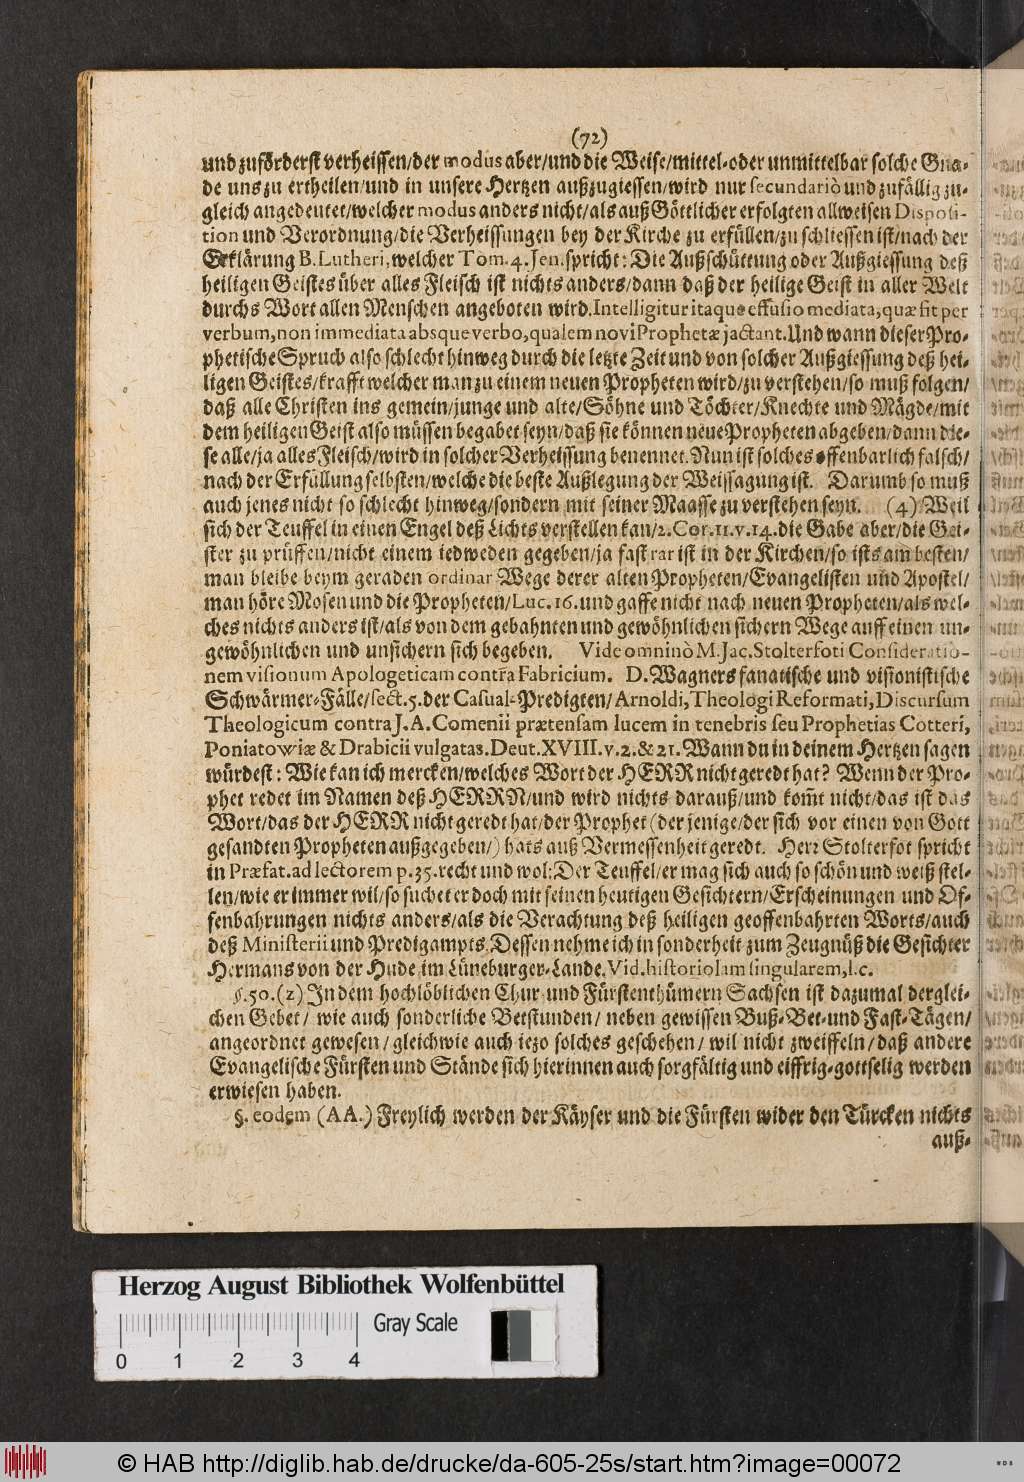 (72)
und zuförderst verheissen/der modus aber/und die Weise/mittel-oder unmittelbar solche Gna-
de uns zu ertheilen/und in unsere Hertzen außzugiessen/wird nur secundariò und zufällig zu-
gleich angedeutet/welcher modus anders nicht/als auß Göttlicher erfolgten allweisen Disposi-
tion und Verordnung/die Verheissungen bey der Kirche zu erfüllen/zu schliessen ist/nach der
Erklärung B. Lutheri, welcher Tom. 4. Jen. spricht: Die Außschüttung oder Außgiessung deß
heiligen Geistes über alles Fleisch ist nichts anders/dann daß der heilige Geist in aller Welt
durchs Wort allen Menschen angeboten wird. Intelligitur itaque effusio mediata, quæ fit per
verbum, non immediata absque verbo, qualem novi Prophetæ jactant. Und wann dieser Pro-
phetische Spruch also schlecht hinweg durch die letzte Zeit und von solcher Außgiessung deß hei-
ligen Geistes/krafft welcher man zu einem neuen Propheten wird/zu verstehen/so muß folgen/
daß alle Christen ins gemein/junge und alte/Söhne und Töchter/Knechte und Mägde/mit
dem heiligen Geist also müssen begabet seyn/daß sie können neue Propheten abgeben/dann die-
se alle/ja alles Fleisch/wird in solcher Verheissung benennet. Nun ist solches offenbarlich falsch/
nach der Erfüllung selbsten/welche die beste Außlegung der Weissagung ist. Darumb so muß
auch jenes nicht so schlecht hinweg/sondern mit seiner Maasse zu verstehen seyn. (4) Weil
sich der Teuffel in einen Engel deß Lichts verstellen kan/2. Cor. 11. v. 14. die Gabe aber/die Gei-
ster zu prüffen/nicht einem iedweden gegeben/ja fast rar ist in der Kirchen/so ists am besten/
man bleibe beym geraden ordinar Wege derer alten Propheten/Evangelisten und Apostel/
man höre Mosen und die Propheten/Luc. 16. und gaffe nicht nach neuen Propheten/als wel-
ches nichts anders ist/als von dem gebahnten und gewöhnlichen sichern Wege auff einen un-
gewöhnlichen und unsichern sich begeben. Vide omninò M. Jac. Stolterfoti Consideratio-
nem visionum Apologeticam contra Fabricium. D. Wagners fanatische und visionistische
Schwärmer-Fälle/sect. 5. der Casual-Predigten/Arnoldi, Theologi Reformati, Discursum
Theologicum contra J. A. Comenii prætensam lucem in tenebris seu Prophetias Cotteri,
Poniatowiæ & Drabicii vulgatas. Deut. XVIII. v. 2. & 21. Wann du in deinem Hertzen sagen
würdest: Wie kan ich mercken/welches Wort der HERR nicht geredt hat? Wenn der Pro-
phet redet im Namen deß HERRN/und wird nichts darauß/und kom̄t nicht/das ist das
Wort/das der HERR nicht geredt hat/der Prophet (der jenige/der sich vor einen von Gott
gesandten Propheten außgegeben/) hats auß Vermessenheit geredt. Herr Stolterfot spricht
in Præfat. ad lectorem p. 35. recht und wol: Der Teuffel/er mag sich auch so schön und weiß stel-
len/wie er immer wil/so suchet er doch mit seinen heutigen Gesichtern/Erscheinungen und Of-
fenbahrungen nichts anders/als die Verachtung deß heiligen geoffenbahrten Worts/auch
deß Ministerii und Predigampts. Dessen nehme ich in sonderheit zum Zeugnüß die Gesichter
Hermans von der Hude im Lüneburger-Lande. Vid. historiolam singularem, l. c.
§. 50. (z) In dem hochlöblichen Chur und Fürstenthümern Sachsen ist dazumal derglei-
chen Gebet/ wie auch sonderliche Betstunden/ neben gewissen Buß-Bet-und Fast-Tägen/
angeordnet gewesen/gleichwie auch iezo solches geschehen/ wil nicht zweiffeln/daß andere
Evangelische Fürsten und Stände sich hierinnen auch sorgfältig und eiffrig-gottselig werden
erwiesen haben.
§. eodem (AA.) Freylich werden der Käyser und die Fürsten wider den Türcken nichts
auß-
Herzog August Bibliothek Wolfenbüttel
Gray Scale
0 1 2 3 4
© HAB http://diglib.hab.de/drucke/da-605-25s/start.htm?image=00072